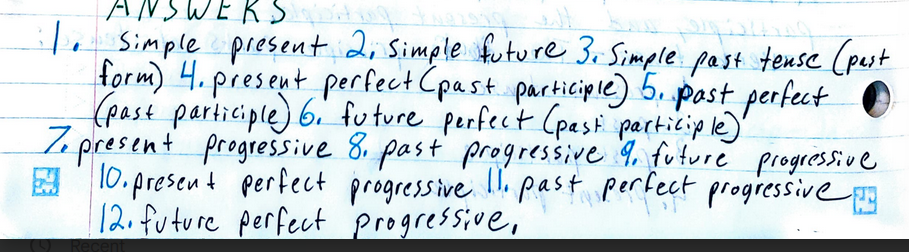 ANSWERS
1. simple present 2. simple future 3. Simple past tense (past
form) 4. present perfect (past participle) 5. past perfect
(past participle) 6. future perfect (past participle)
7. present progressive 8. past progressive 9. future progressive
10. present perfect progressive 11. past perfect progressive
12. future perfect progressive.
Recent